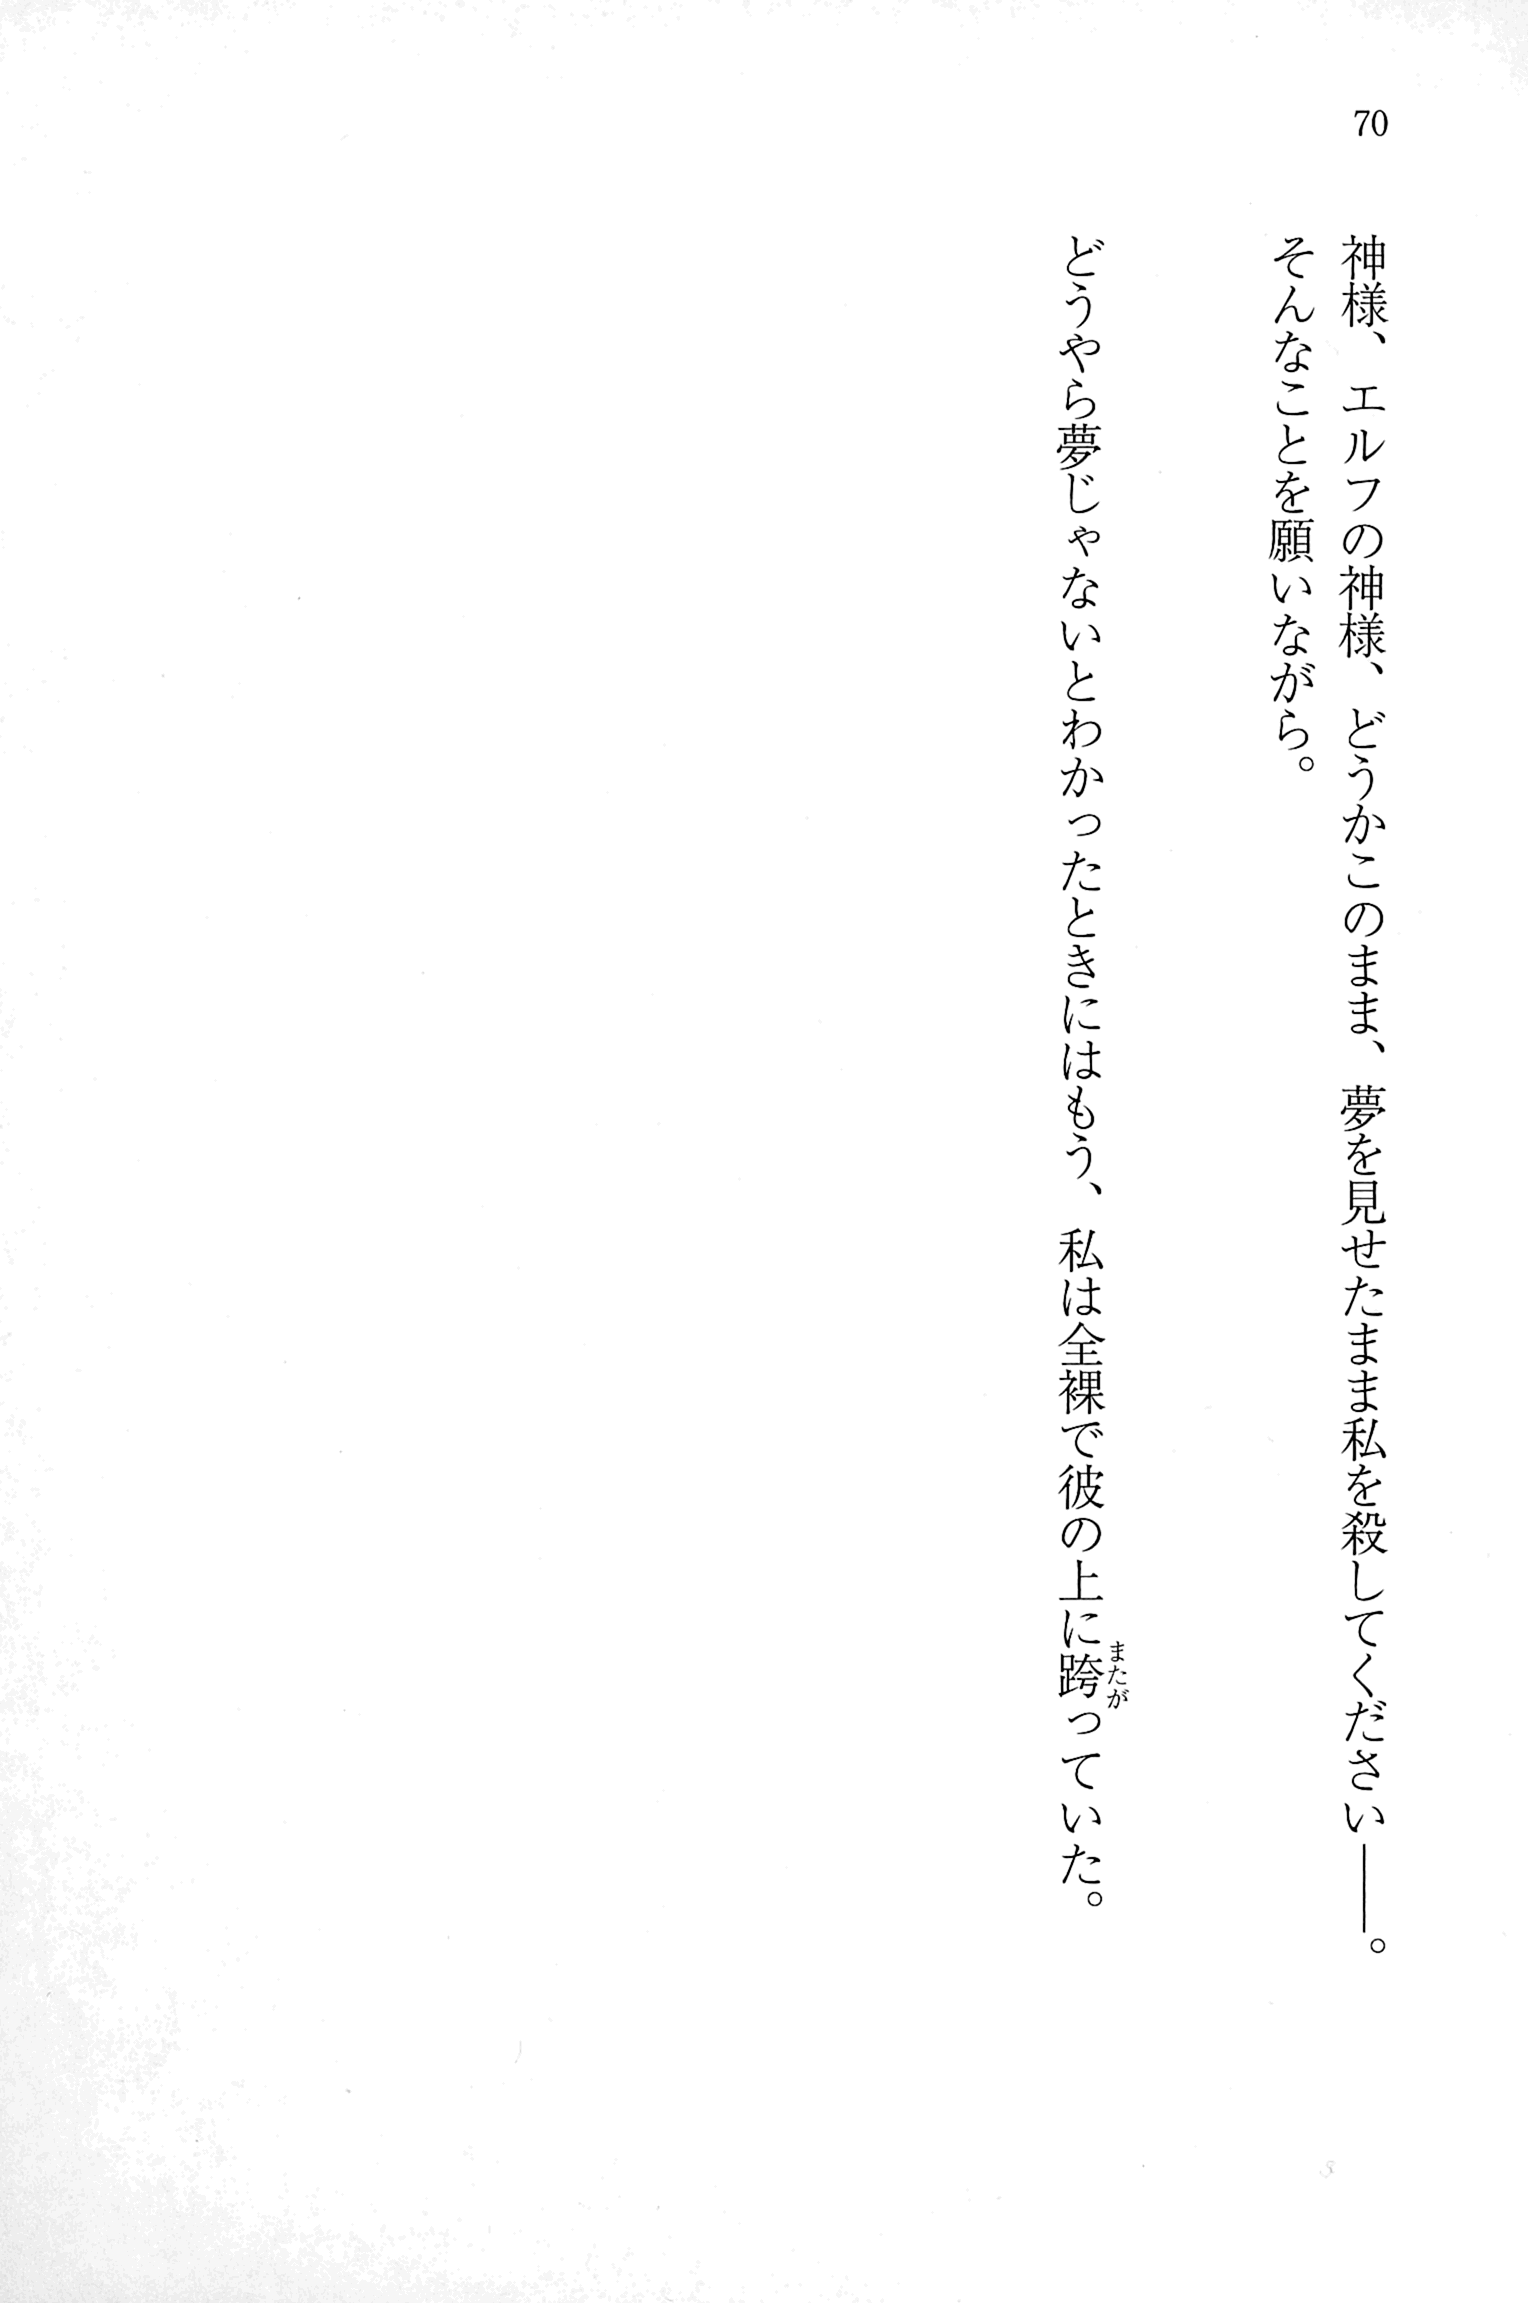 70
神様、エルフの神様、どうかこのまま、夢を見せたまま私を殺してください――。
そんなことを願いながら。
どうやら夢じゃないとわかったときにはもう、私は全裸で彼の上に跨っていた。
またが